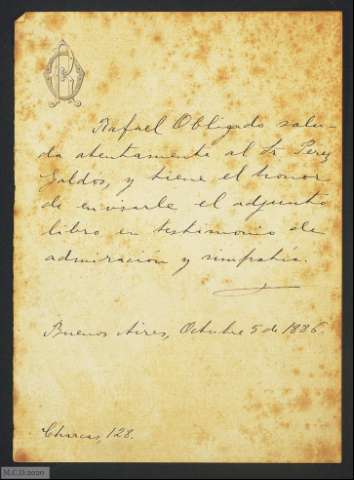 Rafael Obligado salu-
da atentamente al Sr Perez
Galdos, y tiene el honor
de enviarle el adjunto
libro en testimonio de
admiración y simpatía.
Buenos Aires, Octubre 5 de 1886.
Charcas, 128.
M.C.D 2020